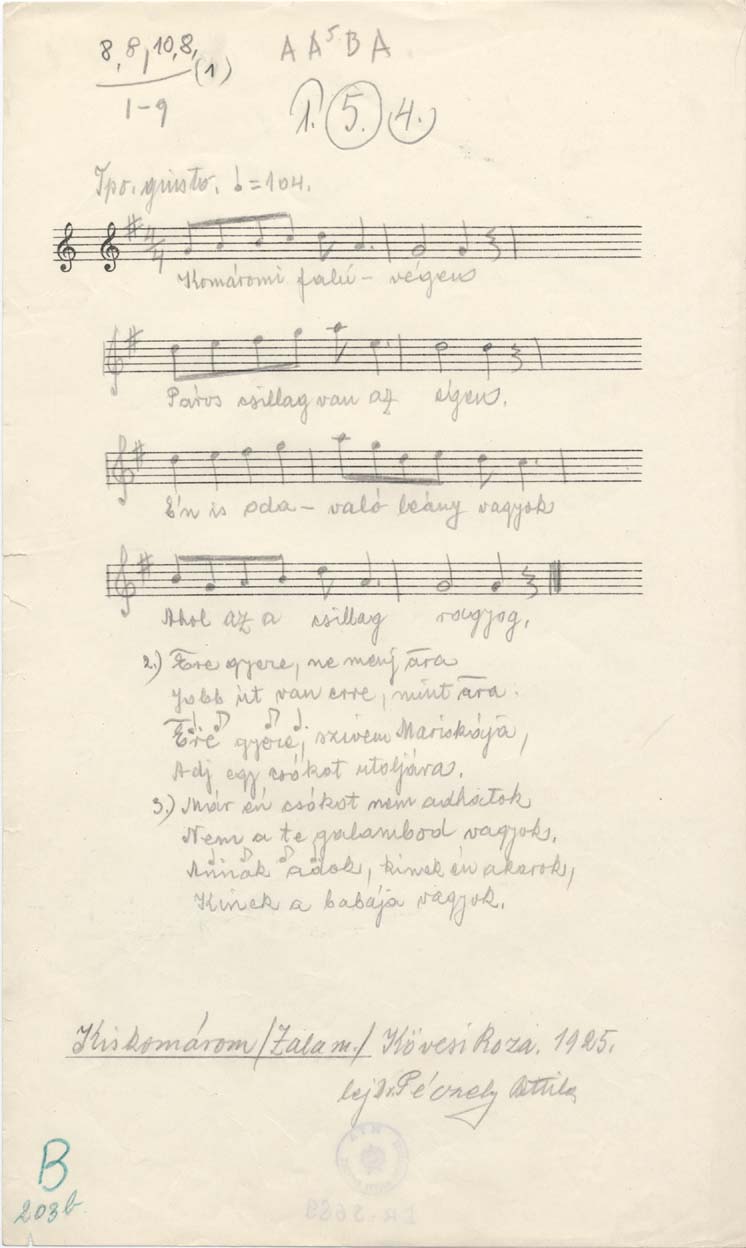 8, 8, 10, 8, (1)
1-9
A A⁵ B A
1. 5. 4.
Tpo. giusto. ♩=104.
4/4
Komáromi falú- végen
Páros csillag van az égen.
Én is oda- való leány vagyok
Ahol az a csillag ragyog,
2.) Ēre gyere, ne menj āra
Jobb út van erre, mint āra.
Ēre gyere, szívem Mariskája,
Adj egy csókot utoljára.
3.) Már én csókot nem adhatok
Nem a te galambod vagyok.
Annak adok, kinek én akarok,
Kinek a babája vagyok.
Kiskomárom /Zala m./ Kövesi Roza. 1925.
lej. Dr. Péczely Attila
B
203b